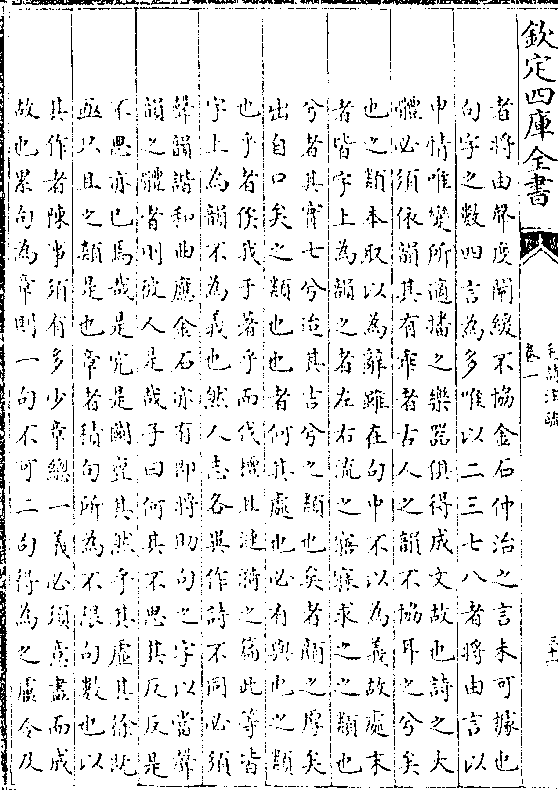 欽定四庫全書
毛詩注疏
卷一
三十一
者將由聲度闡緩不協金石仲治之言未可據也
句字之數四言為多唯以二三七八者將由言以
申情唯變所適播之樂器俱得成文故也詩之大
體必須依韻其有乖者古人之韻不協耳之兮矣
也之類本取以為辭雖在句中不以為義故處末
者皆字上為韻之者左右流之寤寐求之之類也
兮者其實七兮迨其吉兮之類也矣者顔之厚矣
出自口矣之類也也者何其處也必有與也之類
也乎者俟我于著乎而伐檀且漣漪之篇此等皆
字上為韻不為義也然人志各異作詩不同必須
聲韻諧和曲應金石亦有即將助句之字以當聲
韻之體者則彼人是哉子曰何其不思其反反是
不思亦已焉哉是究是圖亶其然乎其虚其徐既
亟只且之類是也章者積句所為不限句數也以
其作者陳事須有多少章總一義必須意盡而成
故也累句為章則一句不可二句得為之盧令及